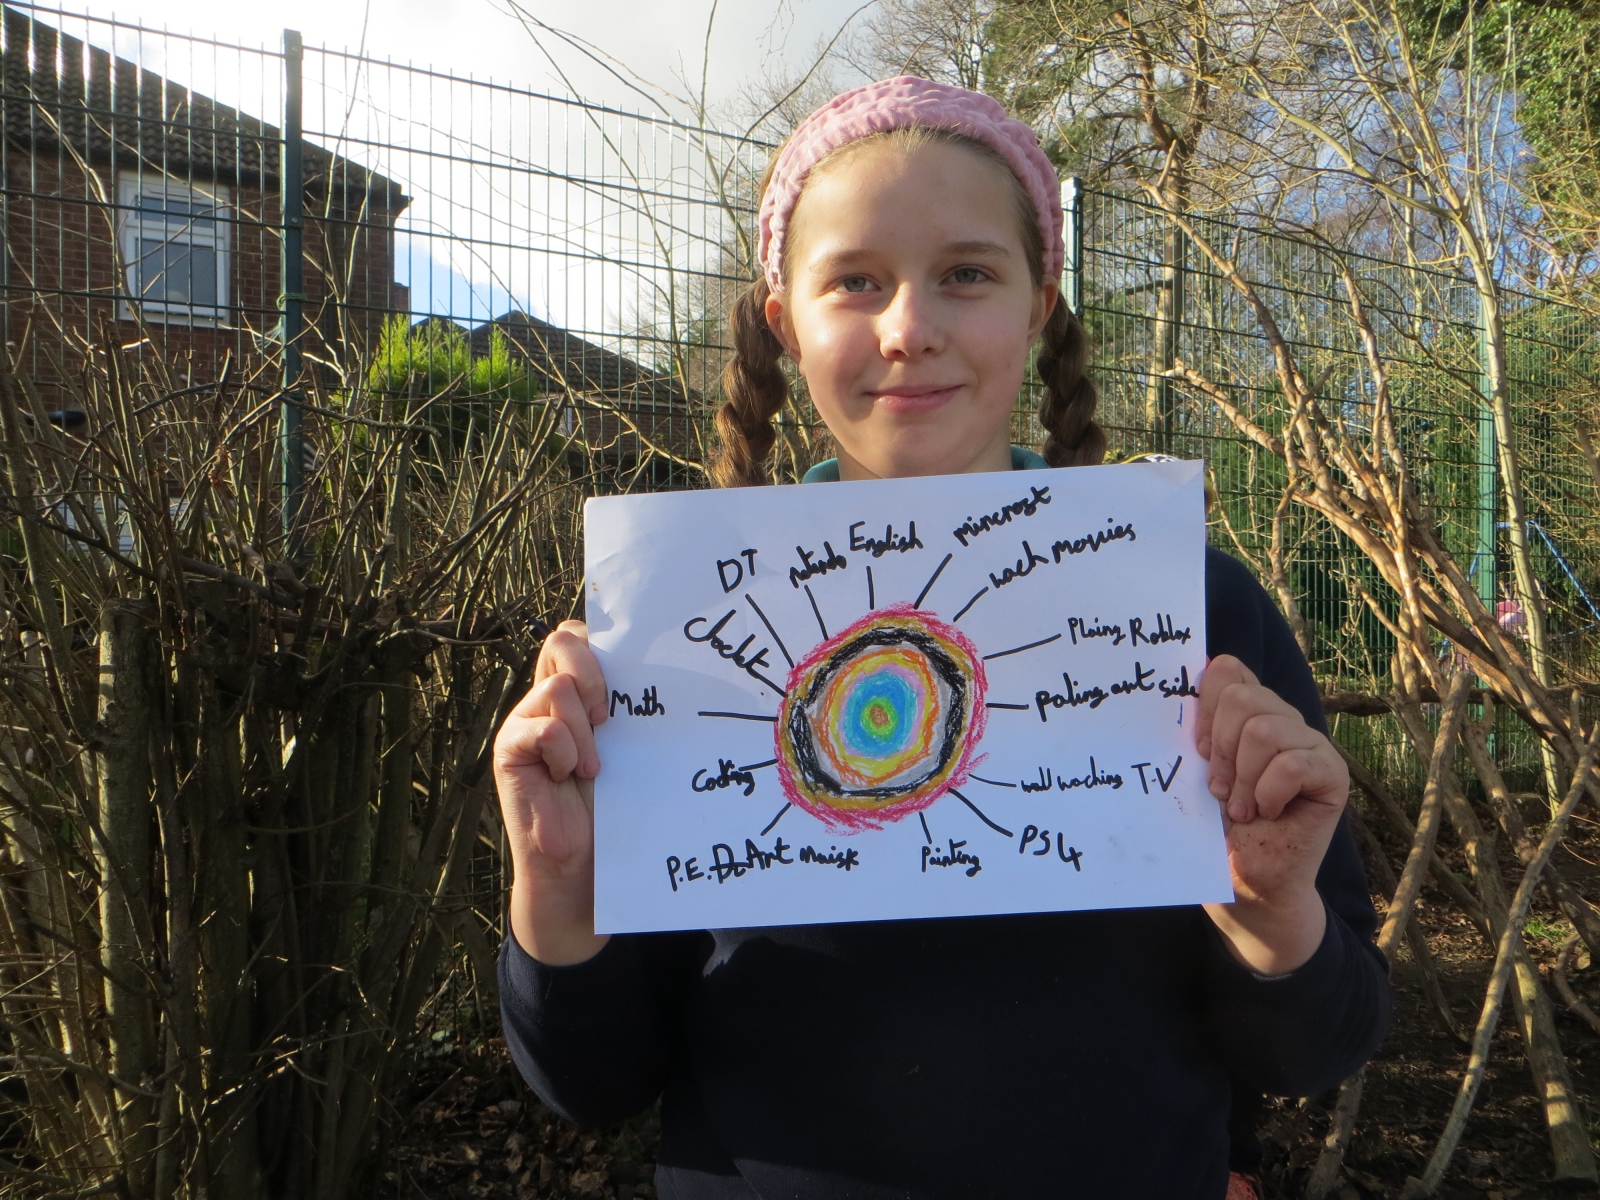 DT
natendo
English
mincroft
wach movies
Plaing Roblox
paling out side
wall waching T.V
PS4
Painting
P.E. D Art Muisk
Codting
Math
Choclet